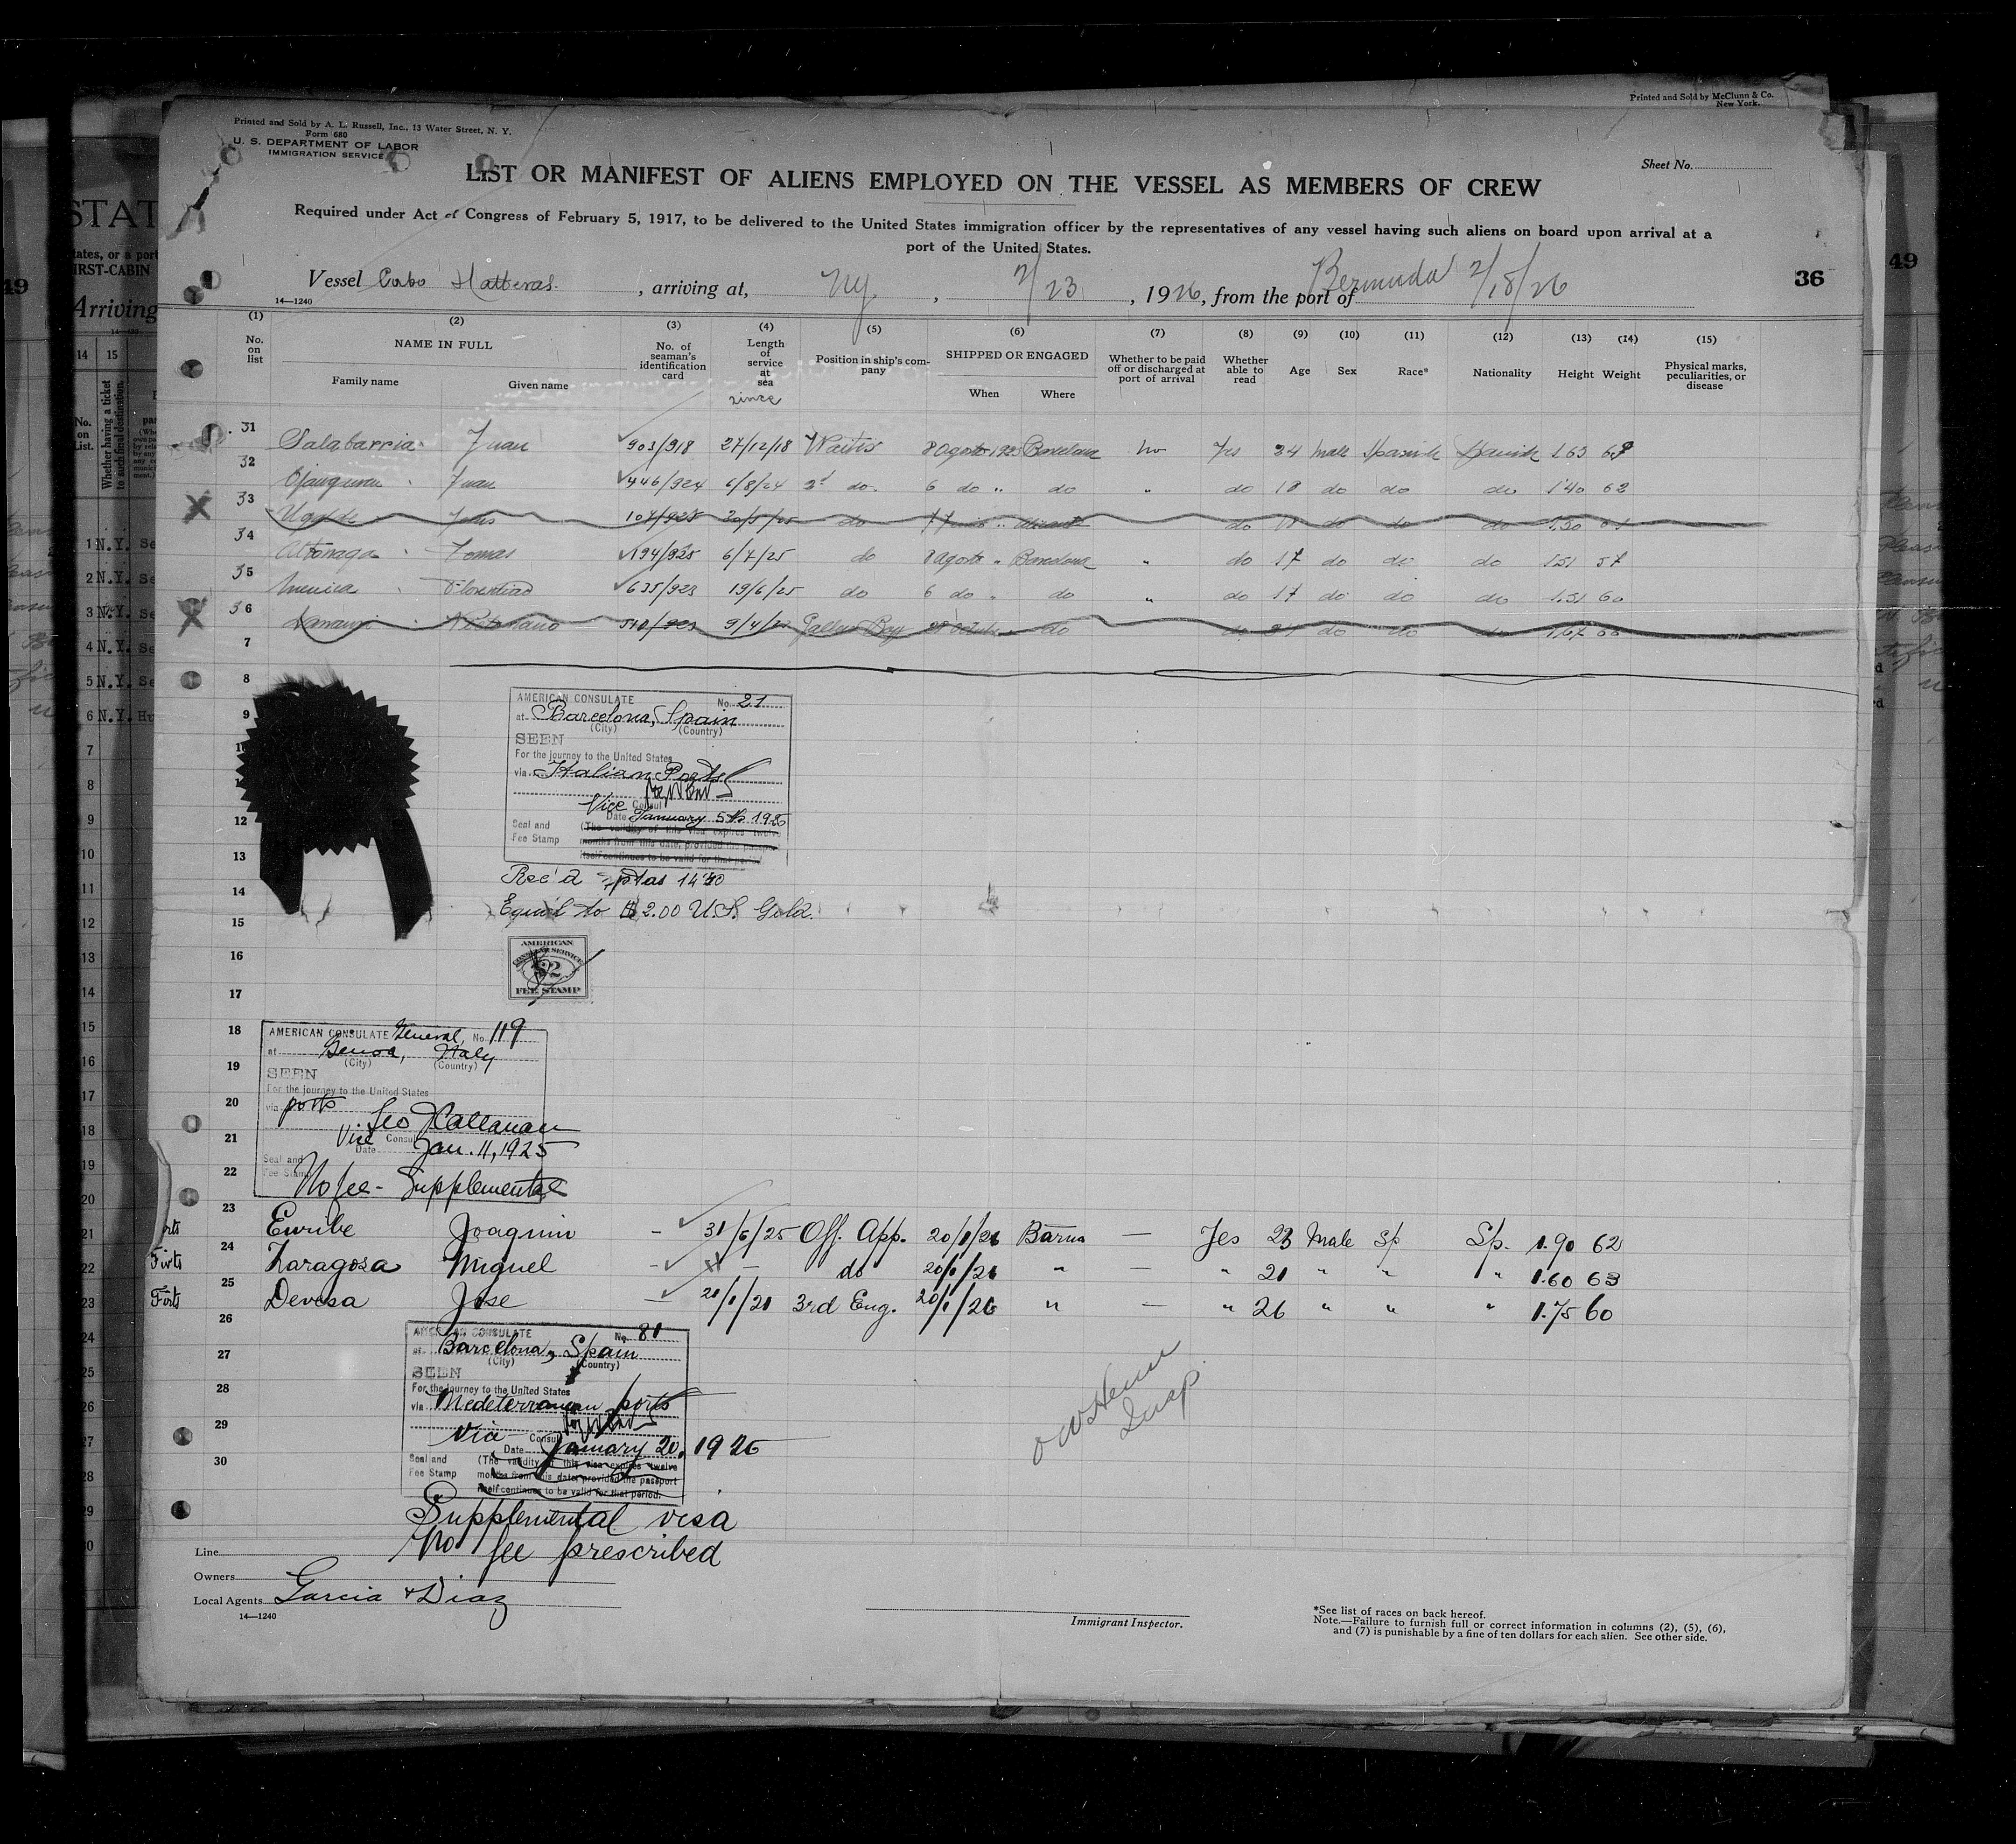 Printed and Sold by McClunn & Co.
New York.
Printed and Sold by A. L. Russell, Inc., 13 Water Street, N. Y.
Form 680
U. S. DEPARTMENT OF LABOR
IMMIGRATION SERVICE
Sheet No.
LIST OR MANIFEST OF ALIENS EMPLOYED ON THE VESSEL AS MEMBERS OF CREW
Required under Act of Congress of February 5, 1917, to be delivered to the United States immigration officer by the representatives of any vessel having such aliens on board upon arrival at a
port of the United States.
Vessel Cabo Hatteras , arriving at, NY , 2/23 , 1926, from the port of Bermuda 2/18/26
36
14—1240
(1) (2) (3) (4) (5) (6) (7) (8) (9) (10) (11) (12) (13) (14) (15)
No. on list
NAME IN FULL
Family name Given name
No. of seaman's identification card
Length of service at sea
since
Position in ship's company
SHIPPED OR ENGAGED
When Where
Whether to be paid off or discharged at port of arrival
Whether able to read
Age Sex Race* Nationality Height Weight
Physical marks, peculiarities, or disease
31 Salabarria Juan 903/918 27/12/18 8 Agosto 192 Barcelona No Yes 24 Male Spanish Spanish 1.63
32 Juan 446/924 6/8/24 2d do. 6 do " do " do 18 do do do 1.40 62
33 107/925 do do do do do
34 Tomas 194/925 6/7/25 do 8 Agosto " Barcelona " do 17 do do do 1.51 57
35 635/923 19/6/25 do 6 do " do " do 17 do do do 1.51 60
36 9/4/ do do do do do
7
8
9
12
13
14
15
16
17
AMERICAN CONSULATE No. 21
at Barcelona, Spain
(City) (Country)
SEEN
For the journey to the United States
via Italian Ports
Vice Consul
Date January 5th 1926
Seal and Fee Stamp
(The validity of this visa expires twelve
months from this date, provided the passport
itself continues to be valid for that period
Rec'd ptas 14.20
Equal to $2.00 U.S. Gold.
AMERICAN
CONSULAR SERVICE
$2
FEE STAMP
18
19
20
21
22
AMERICAN CONSULATE General, No. 119
at Genoa, Italy
(City) (Country)
SEEN
For the journey to the United States
via ports
Vice Consul
Date Jan. 11, 1925
Seal and
Fee Stamp
No fee - Supplemental
23 Euribe Joaquin — 31/6/25 Off. App. 20/1/26 Barna — Yes 23 Male Sp Sp. 1.90 62
24 Zaragosa Miguel — do 20/1/26 " — " 21 " " " 1.60 63
25 Devesa Jose — 21/1/21 3rd Eng. 20/1/26 " — " 26 " " " 1.75 60
26
27
28
29
30
AMERICAN CONSULATE No. 81
at Barcelona, Spain
(City) (Country)
SEEN
For the journey to the United States
via Mediterranean ports
Consul
Date January 20, 1926
Seal and
Fee Stamp
(The validity of this visa expires twelve
months from this date, provided the passport
itself continues to be valid for that period.
Supplemental visa
No fee prescribed
Insp
Line
Owners
Local Agents Garcia & Diaz
14—1240
Immigrant Inspector.
*See list of races on back hereof.
Note.—Failure to furnish full or correct information in columns (2), (5), (6),
and (7) is punishable by a fine of ten dollars for each alien. See other side.